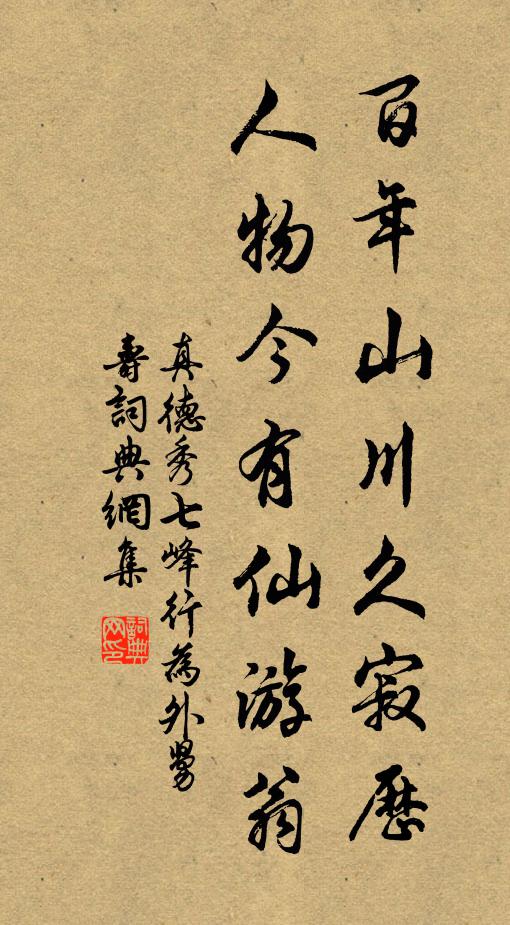 百年山川久寂歷
人物今有仙游翁
真德秀七峰行為外舅
壽詞典網集
詞典網印